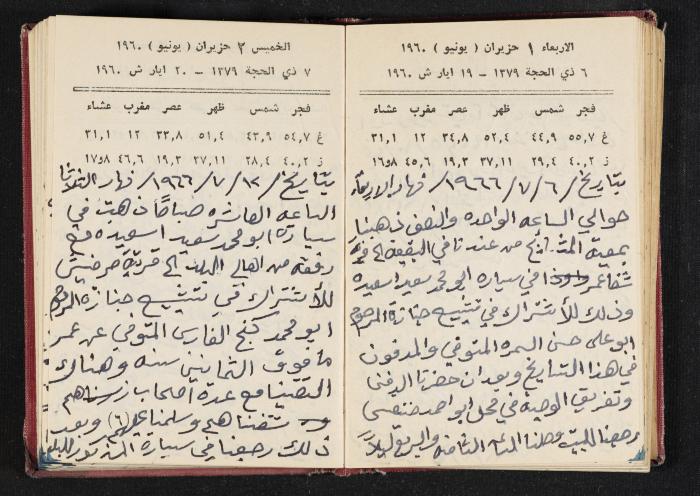 الاربعاء ١ حزيران ( يونيو ) ١٩٦٠
٦ ذي الحجة ١٣٧٩ — ١٩ ايار ش ١٩٦٠
فجر شمس ظهر عصر مغرب عشاء
غ ٥٥,٧ ٤٤,٩ ٥٢,٤ ٣٤,٨ ١٢ ٣١,١
ز ٤٠,٢ ٢٩,٤ ٣٧,١١ ١٩,٣ ٤٥,٦ ١٦و٨
بتاريخ / ٦ / ٧ / ١٩٦٦ / نهار الاربعاء
حوالي الساعه الواحده والنصف ذهبنا
بمعية المشايخ من عندنا في البقيعة الى
شفاعمر في سيارة ابو محمد سعيد اسعيده
وذلك للأشتراك في تشييع جنازة المرحوم
ابو علي حسن المتوفي والمدفون
في هذا التاريخ وبعد ان حضرنا الدفن
وتفريق الوصية في محل ابو احمد
رجعنا للبيت وصلنا الساعه الثامنه والربع ليلاً
الخميس ٢ حزيران ( يونيو ) ١٩٦٠
٧ ذي الحجة ١٣٧٩ — ٢٠ ايار ش ١٩٦٠
فجر شمس ظهر عصر مغرب عشاء
غ ٥٤,٧ ٤٣,٩ ٥١,٤ ٣٣,٨ ١٢ ٣١,١
ز ٤٠,٢ ٢٨,٤ ٣٧,١١ ١٩,٣ ٤٦,٦ ١٧و٨
بتاريخ / ١٢ / ٧ / ١٩٦٦ / نهار الثلاثا
الساعه العاشره صباحاً ذهبت في
سيارة ابو محمد سعيد اسعيده مع
رفقه من اهالي البلد الى قرية
للأشتراك في تشييع جنازة المرحوم
ابو محمد كنج الفارس المتوفي عن عمر
ما فوق الثمانين سنه وهناك
التقينا مع عدة اصحاب
شفناهم وسلمنا عليهم (٦) وبعد
ذلك رجعنا في سيارة المذكور للبلد